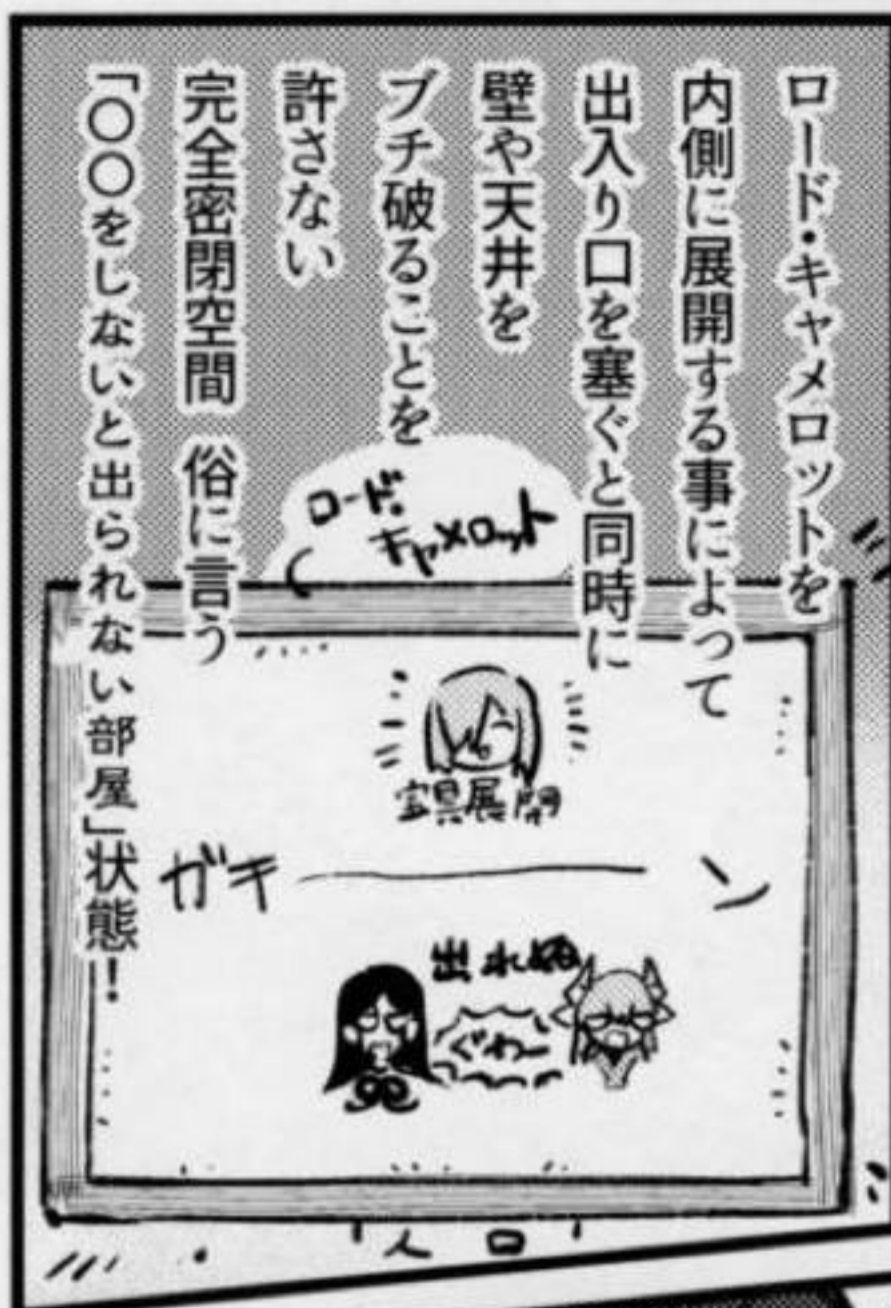 ロード・キャメロットを
内側に展開する事によって
出入り口を塞ぐと同時に
壁や天井を
ブチ破ることを
許さない
完全密閉空間 俗に言う
「〇〇をしないと出られない部屋」状態!
ロード・
キャメロット
宝具展開
ガキーン
出れぬ
ぐわー
入口